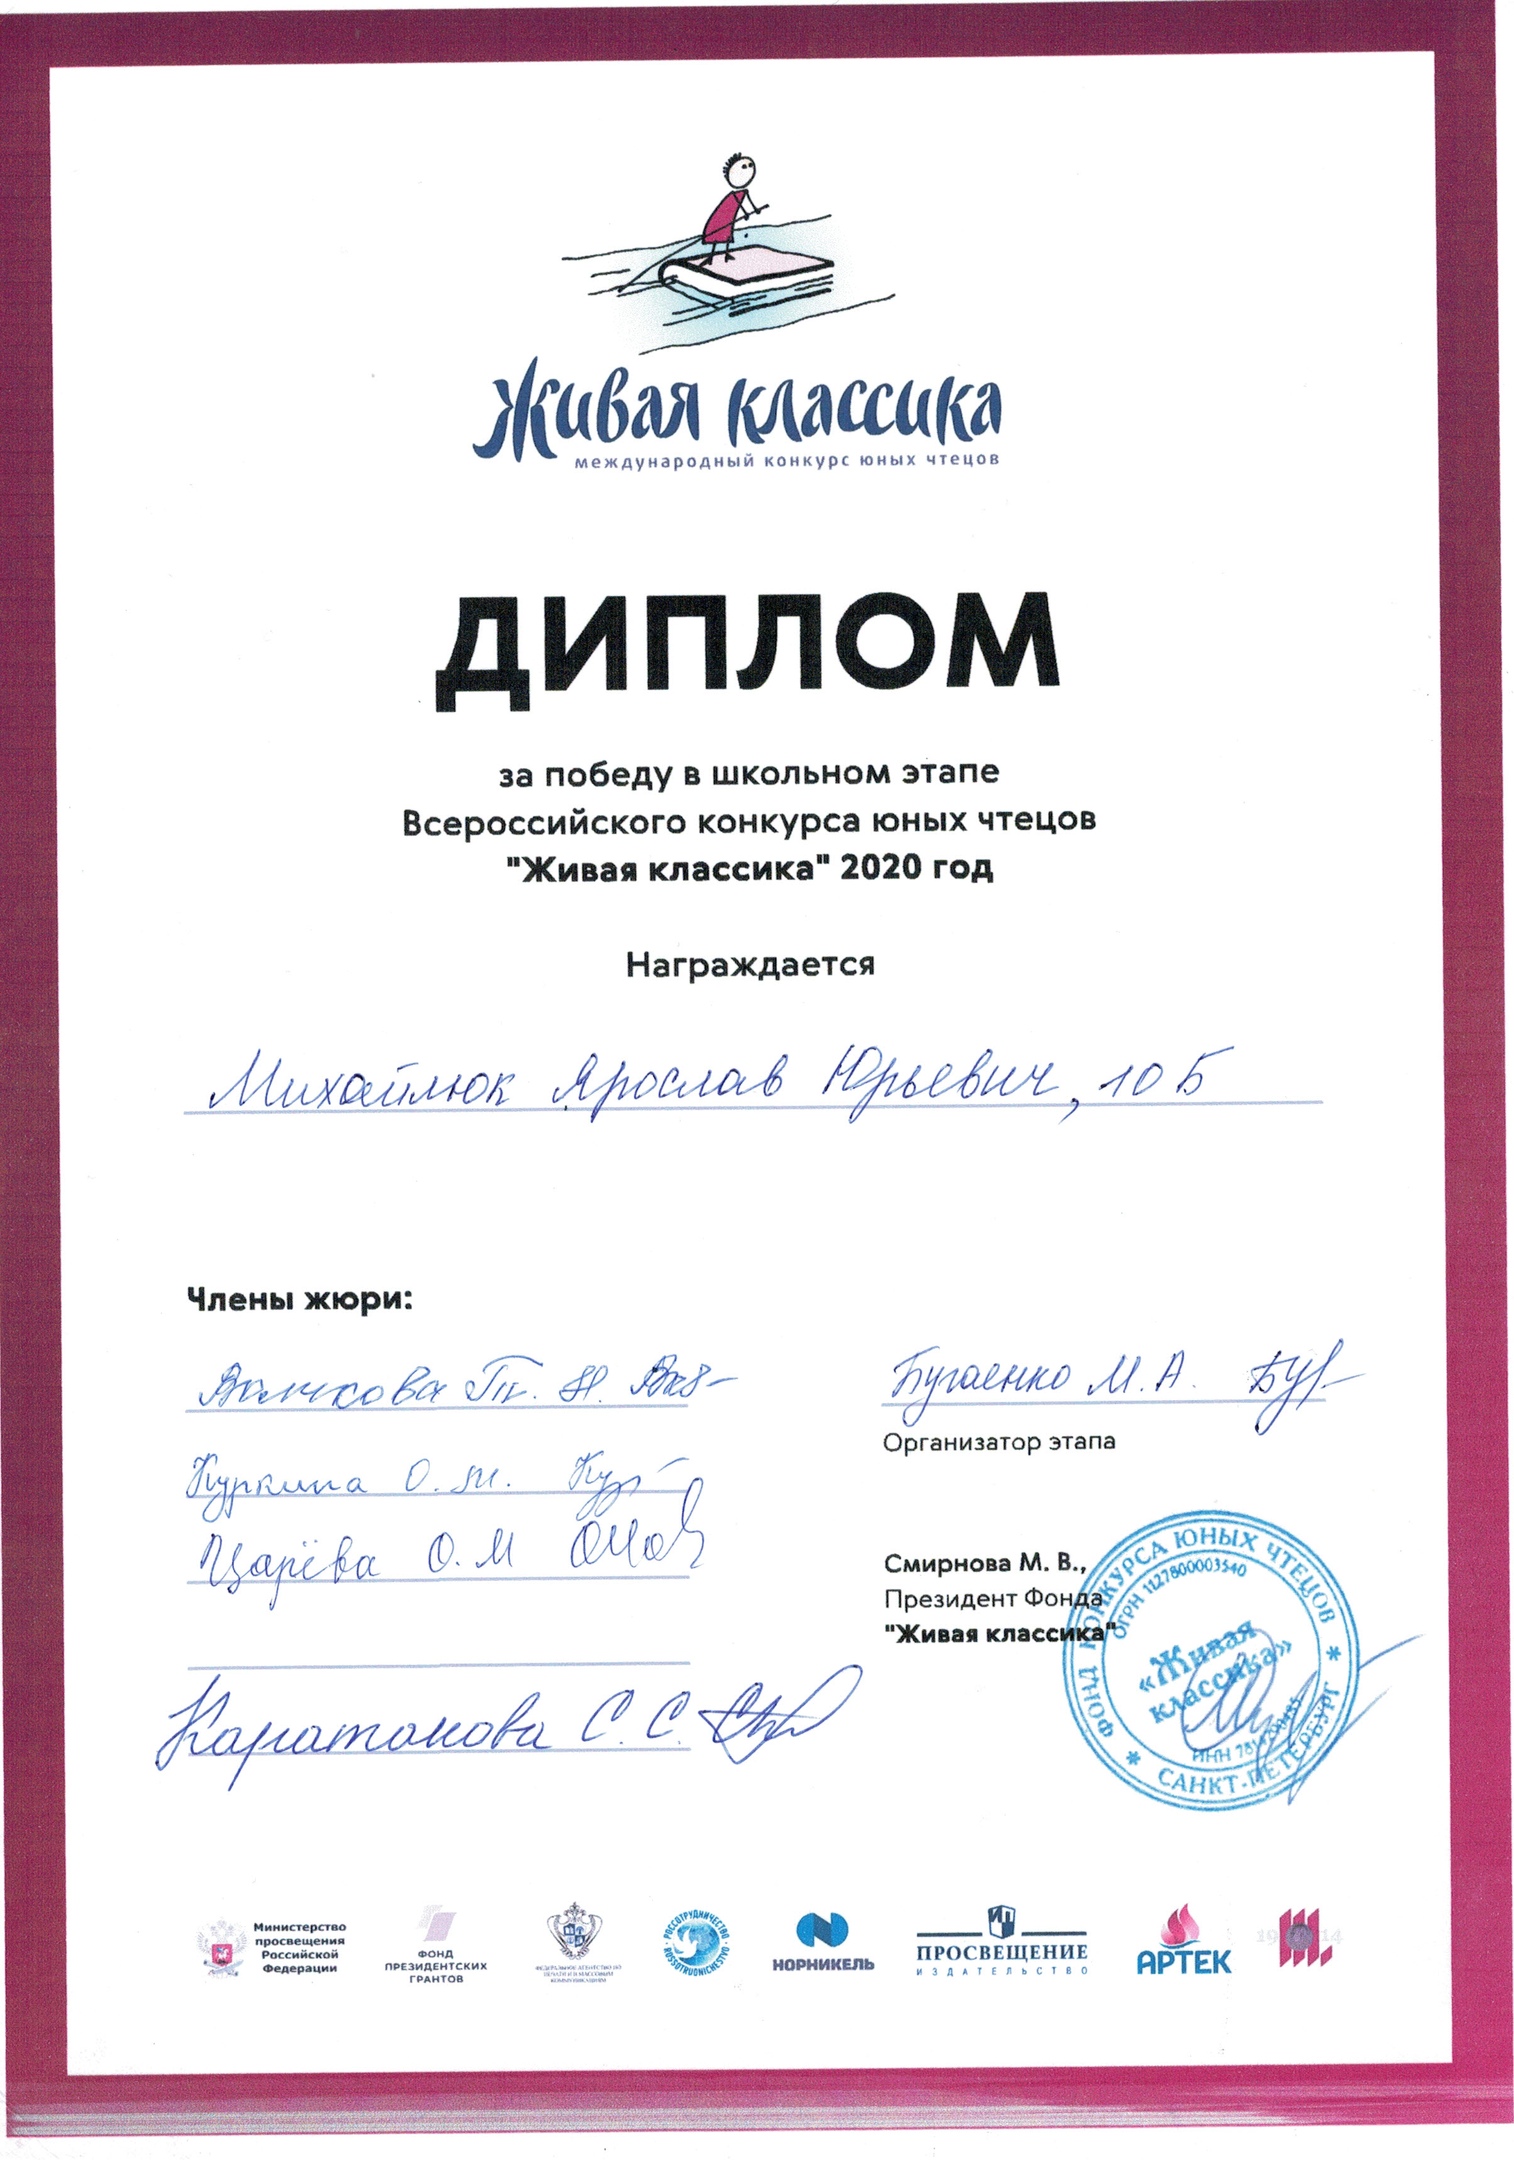 Живая классика
международный конкурс юных чтецов
ДИПЛОМ
за победу в школьном этапе
Всероссийского конкурса юных чтецов
"Живая классика" 2020 год
Награждается
Михайлюк Ярослав Юрьевич, 10 Б
Члены жюри:
Куркина О.
Царёва О. М
Каратонова С. С.
Бугаенко М. А.
Организатор этапа
Смирнова М. В.,
Президент Фонда
"Живая классика"
ФОНД КОНКУРСА ЮНЫХ ЧТЕЦОВ
ОГРН 1127800003540
«Живая
классика»
ИНН
* САНКТ-ПЕТЕРБУРГ *
Министерство
просвещения
Российской
Федерации
ФОНД
ПРЕЗИДЕНТСКИХ
ГРАНТОВ
ФЕДЕРАЛЬНОЕ АГЕНТСТВО ПО
ПЕЧАТИ И МАССОВЫМ
КОММУНИКАЦИЯМ
РОССОТРУДНИЧЕСТВО
ROSSOTRUDNICHESTVO
НОРНИКЕЛЬ
ПРОСВЕЩЕНИЕ
ИЗДАТЕЛЬСТВО
АРТЕК